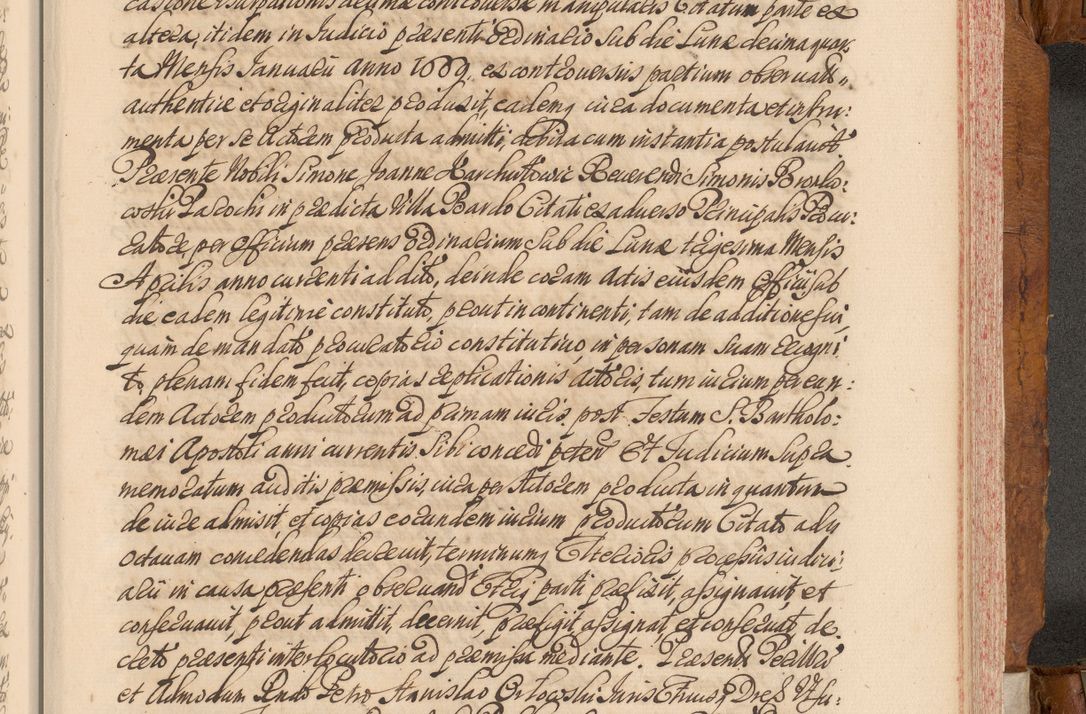 casione usurpationis decimæ controversæ manipularis Citatum parte ex
altera, itidem in Judicio præsenti Ordinario sub die Lunæ decima quar,
ta Mensis Januarii anno 1689, ex controversiis partium observandi,,
authenticè et originaliter produxit, eademq iura documenta et instru:
menta per se Actorem producta admitti, debita cum instantia postulavit
Præsente Nobili Simone Joanne Reverendi Simonis
in prædicta Villa Bardo Citati ex adverso Principalis Procu:
ratore, per officium præsens Ordinarium sub die Lunæ trigesima Mensis
Aprilis anno currenti addito, deinde coram Actis eiusdem Officii sub
die eadem legitimè constituto, prout in continenti, tam de additione sui,
quàm de mandato procuratorio constitutivo, in personam suam recogni
to, plenam fidem fecit, copias replicationis Actoris, tum iurium per eun:
dem Actorem productorum ad primam iuris post Festum S. Bartholo:
mæi Apostoli anni currentis sibi concedi peten Et Judicium supra
memoratum auditis præmissis iura per Actorem producta in quantum
de iure admisit, et copias eorundem iurium productorum Citato ad
octavam concedendas decrevit, terminumq processus iudici:
arii in causa præsenti observandi parti præfixit, assignavit, et
conservavit, prout admittit, decernit, præfigit, assignat, et conservat, de:
creto præsenti interlocutorio ad præmissa mediante. Præsenti
et Admodum Rndo Petro Stanislao Orłowski Juris